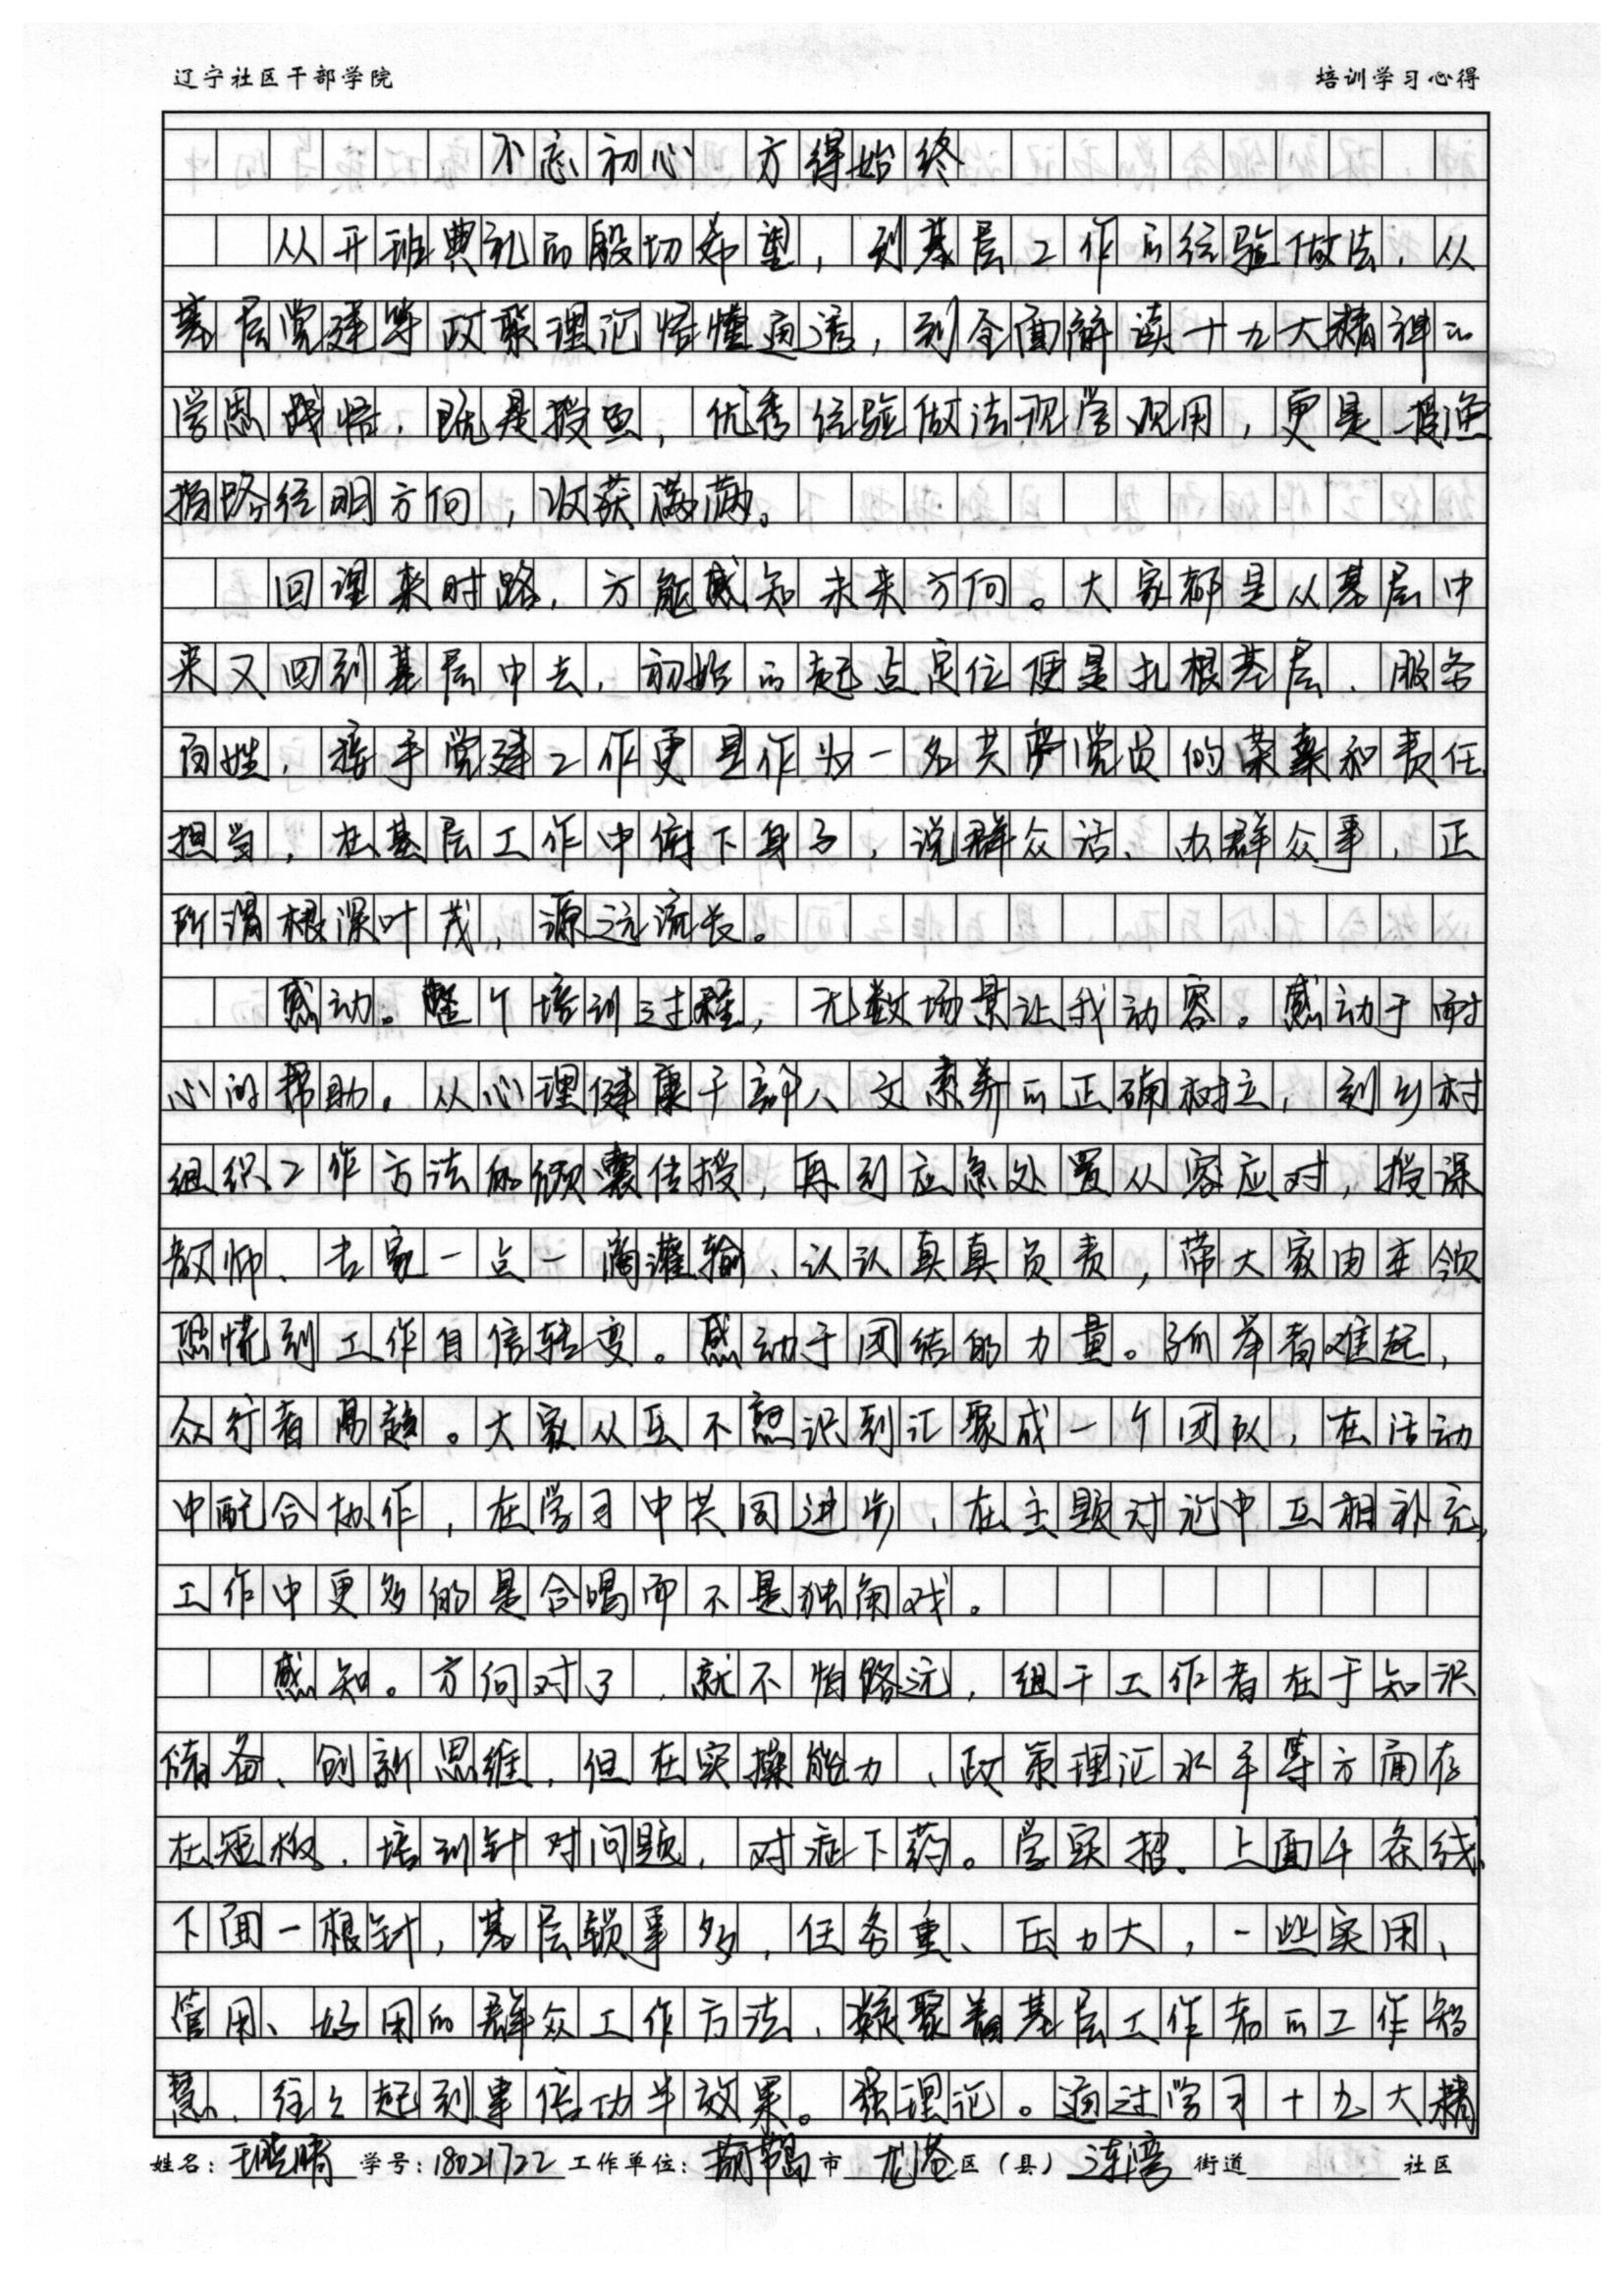 辽宁社区干部学院 培训学习心得
不忘初心 方得始终
从开班典礼的殷切希望，到基层工作的经验做法，从
基层党建等政策理论悟懂通透，到全面解读十九大精神的
学思践悟，既是授鱼，优秀经验做法现学现用，更是授渔
指路径明方向，收获满满。
回望来时路，方能感知未来方向。大家都是从基层中
来又回到基层中去，初始的起点定位便是扎根基层、服务
百姓，接手党建工作更是作为一名共产党员的荣耀和责任
担当，在基层工作中俯下身子，说群众话、办群众事，正
所谓根深叶茂，源远流长。
感动。整个培训过程，无数场景让我动容。感动于耐
心的帮助。从心理健康干部人文素养的正确树立，到乡村
组织工作方法的倾囊传授，再到应急处置从容应对，授课
教师、专家一点一滴灌输、认认真真负责，带大家由本领
恐慌到工作自信转变。感动于团结的力量。孤举者难起，
众行者易趋。大家从互不熟识到汇聚成一个团队，在活动
中配合协作，在学习中共同进步，在主题讨论中互相补充，
工作中更多的是合唱而不是独角戏。
感知。方向对了，就不怕路远，组干工作者在于知识
储备、创新思维，但在实操能力、政策理论水平等方面存
在短板，培训针对问题，对症下药。学实招。上面千条线，
下面一根针，基层锁事多，任务重、压力大，一些实用、
管用、好用的群众工作方法，凝聚着基层工作者的工作智
慧，往往起到事倍功半效果。强理论。通过学习十九大精
姓名：王晓晴 学号：18021722 工作单位：葫芦岛市 龙港区（县） 连湾街道 社区